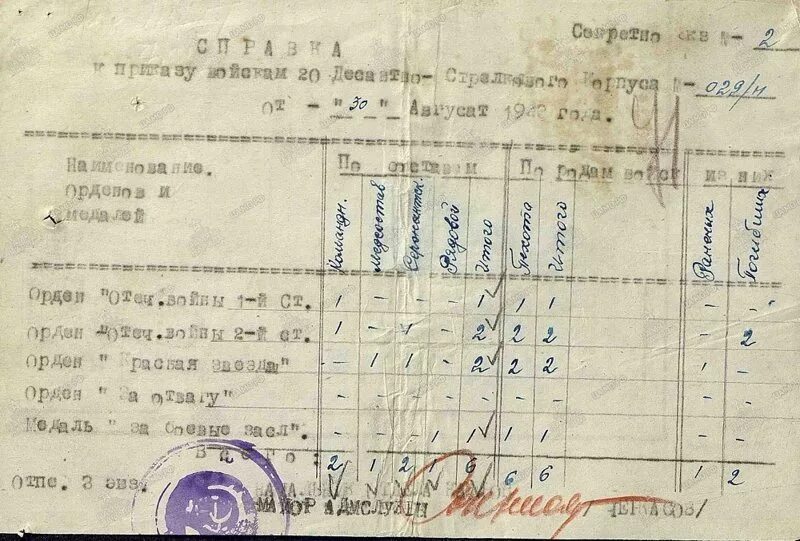 Секретно экз №- 2
СПРАВКА
к приказу войскам 20 Десантно- Стрелкового Корпуса №- 029/н
от - "30" Авгусат 194 года.
Наименование. По составам По родам войск из них
Орденов и
медалей
Командн. Медсостав Рядовой Итого Пехота Итого Раненых Погибших
Орден "Отеч.войны 1-й Ст. 1 - - - 1 1 1 - -
Орден "Отеч.войны 2-й ст. 1 - 1 - 2 2 2 - 2
Орден " Красная звезда" - 1 1 - 2 2 2 1 -
Орден " За отвагу" - - - - - - - - -
Медаль " за боевые засл". - - - 1 1 1 1 - -
Всего: 2 1 2 1 6 6 6 1 2
Отпе. 3 экз.
МАЙОР АДМ.СЛУЖБЫ /ЧЕРКАСОВ/